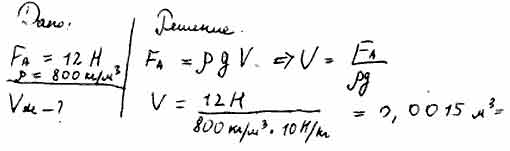 Дано:
F_A = 12 Н
ρ = 800 кг/м³
Vж – ?
Решение.
F_A = ρ g V. => V = F_A / ρg
V = 12 Н / 800 кг/м³ · 10 Н/кг = 0,0015 м³ =